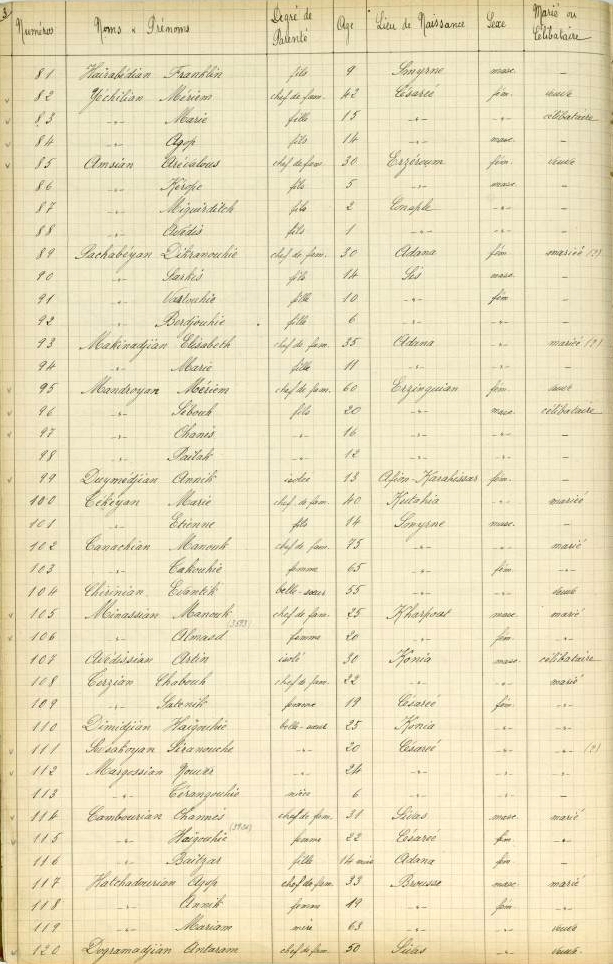 3
Numéros Noms & Prénoms Degré de Parenté Age Lieu de Naissance Sexe Marié ou Célibataire
81 Hairabédian Franklin fils 9 Smyrne masc. –
82 Yéchilian Mériem chef de fam. 42 Césareé fém. veuve
83 -"- Marie fille 15 -"- -"- célibataire
84 -"- Agop fils 14 -"- masc. –
85 Amsian Arévalous chef de fam. 30 Erzéroum fém. veuve
86 -"- Kéropé fils 5 -"- masc. –
87 -"- Miguirditch fils 2 Conople -"- –
88 -"- Avédis fils 1 -"- -"- –
89 Pachabéyan Dikranouhie chef de fam. 30 Adana fém. mariée (?)
90 -"- Sarkis fils 14 Sis masc. –
91 -"- Vartouhie fille 10 -"- fém –
92 -"- Berdjouhie fille 6 -"- -"- –
93 Makinadjian Elisabeth chef de fam. 35 Adana -"- mariée (?)
94 -"- Marie fille 11 -"- -"- –
95 Mandroyan Mériem chef de fam. 60 Erzinguian fém.
96 -"- Sebouh fils 20 -"- masc. célibataire
97 -"- Ohanès -"- 16 -"- -"- –
98 -"- -"- 12 -"- -"- –
99 Duymédjian Annik isolée 13 Afion-Karahissar fém. –
100 Tékéyan Marie chef de fam. 40 Kutahia -"- mariée
101 -"- Etienne fils 14 Smyrne masc. –
102 Canachian Manouk chef de fam. 75 -"- -"- marié
103 -"- Takouhie femme 65 -"- fém. -"-
104 Chirinian Evantik belle-sœur 55 -"- -"- veuve
105 Minassian Manouk chef de fam. 25 Kharpout masc. marié
(3573)
106 -"- Almasd femme 20 -"- fém. -"-
107 Avédissian Artin isolé 30 Konia masc. célibataire
108 Terzian Chabouh chef de fam. 22 -"- -"- marié
109 -"- Satenik femme 19 Césareé fém. -"-
110 Dimidjian Haïgouhie belle-sœur 25 Konia -"- -"-
111 Siranouche -"- 20 Césareé -"- -"- (?)
112 Margossian -"- 24 -"- -"- -"-
113 -"- Térangouhie nièce 6 -"- -"- –
114 Cambourian Ohannes chef de fam. 31 Sivas masc. marié
115 -"- Haïgouhie femme 22 Césareé fém. -"-
116 -"- Baïtzar fille 14 mois Adana fém –
117 Hatchadourian Agop chef de fam. 33 Brousse masc. marié
118 -"- Annik femme 19 -"- fém. -"-
119 -"- Mariam mère 63 -"- -"- veuve
120 Dogramadjian Antaram chef de fam. 50 Sivas -"- veuve